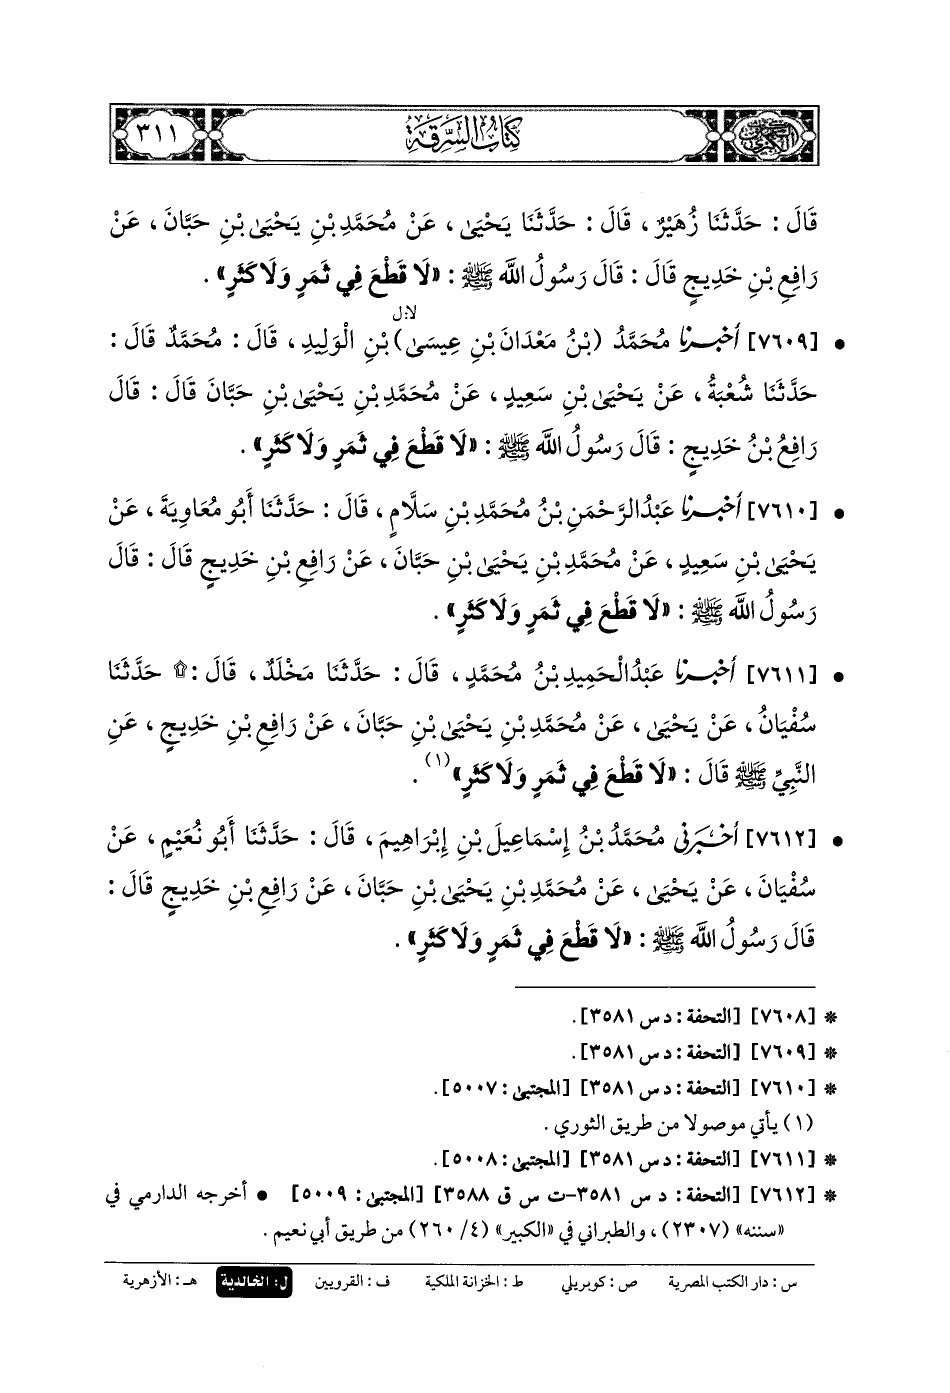 كتاب السرقة
٣١١
قَالَ : حَدَّثَنَا زُهَيْرٌ ، قَالَ : حَدَّثَنَا يَحْيَىٰ ، عَنْ مُحَمَّدِ بْنِ يَحْيَىٰ بْنِ حَبَّانَ ، عَنْ
رَافِعِ بْنِ خَدِيجٍ قَالَ : قَالَ رَسُولُ اللَّه ﷺ : «لَا قَطْعَ فِي ثَمَرٍ وَلَا كَثَرٍ» .
لا:ل
• [٧٦٠٩] أخبرنا مُحَمَّدُ (بْنُ مَعْدَانَ بْنِ عِيسَىٰ) بْنِ الْوَلِيدِ ، قَالَ : مُحَمَّدٌ قَالَ :
حَدَّثَنَا شُعْبَةُ ، عَنْ يَحْيَىٰ بْنِ سَعِيدٍ ، عَنْ مُحَمَّدِ بْنِ يَحْيَىٰ بْنِ حَبَّانَ قَالَ : قَالَ
رَافِعُ بْنُ خَدِيجٍ : قَالَ رَسُولُ اللَّه ﷺ : «لَا قَطْعَ فِي ثَمَرٍ وَلَا كَثَرٍ» .
• [٧٦١٠] أخبرنا عَبْدُ الرَّحْمَنِ بْنُ مُحَمَّدِ بْنِ سَلَّامٍ ، قَالَ : حَدَّثَنَا أَبُو مُعَاوِيَةَ ، عَنْ
يَحْيَىٰ بْنِ سَعِيدٍ ، عَنْ مُحَمَّدِ بْنِ يَحْيَىٰ بْنِ حَبَّانَ ، عَنْ رَافِعِ بْنِ خَدِيجٍ قَالَ : قَالَ
رَسُولُ اللَّه ﷺ : «لَا قَطْعَ فِي ثَمَرٍ وَلَا كَثَرٍ» .
• [٧٦١١] أخبرنا عَبْدُ الْحَمِيدِ بْنُ مُحَمَّدٍ ، قَالَ : حَدَّثَنَا مَخْلَدٌ ، قَالَ : ۩ حَدَّثَنَا
سُفْيَانُ ، عَنْ يَحْيَىٰ ، عَنْ مُحَمَّدِ بْنِ يَحْيَىٰ بْنِ حَبَّانَ ، عَنْ رَافِعِ بْنِ خَدِيجٍ ، عَنِ
النَّبِيِّ ﷺ قَالَ : «لَا قَطْعَ فِي ثَمَرٍ وَلَا كَثَرٍ» (١) .
• [٧٦١٢] أخبرني مُحَمَّدُ بْنُ إِسْمَاعِيلَ بْنِ إِبْرَاهِيمَ ، قَالَ : حَدَّثَنَا أَبُو نُعَيْمٍ ، عَنْ
سُفْيَانَ ، عَنْ يَحْيَىٰ ، عَنْ مُحَمَّدِ بْنِ يَحْيَىٰ بْنِ حَبَّانَ ، عَنْ رَافِعِ بْنِ خَدِيجٍ قَالَ :
قَالَ رَسُولُ اللَّه ﷺ : «لَا قَطْعَ فِي ثَمَرٍ وَلَا كَثَرٍ» .
* [٧٦٠٨] [التحفة : د س ٣٥٨١] .
* [٧٦٠٩] [التحفة : د س ٣٥٨١] .
* [٧٦١٠] [التحفة : د س ٣٥٨١] [المجتبىٰ : ٥٠٠٧] .
(١) يأتي موصولا من طريق الثوري .
* [٧٦١١] [التحفة : د س ٣٥٨١] [المجتبىٰ : ٥٠٠٨] .
* [٧٦١٢] [التحفة : د س ٣٥٨١-ت س ق ٣٥٨٨] [المجتبىٰ : ٥٠٠٩] • أخرجه الدارمي في
«سننه» (٢٣٠٧) ، والطبراني في «الكبير» (٤/ ٢٦٠) من طريق أبي نعيم .
س : دار الكتب المصرية ص : كوبريلي ط : الخزانة الملكية ف : القرويين ل : الخالدية هـ : الأزهرية